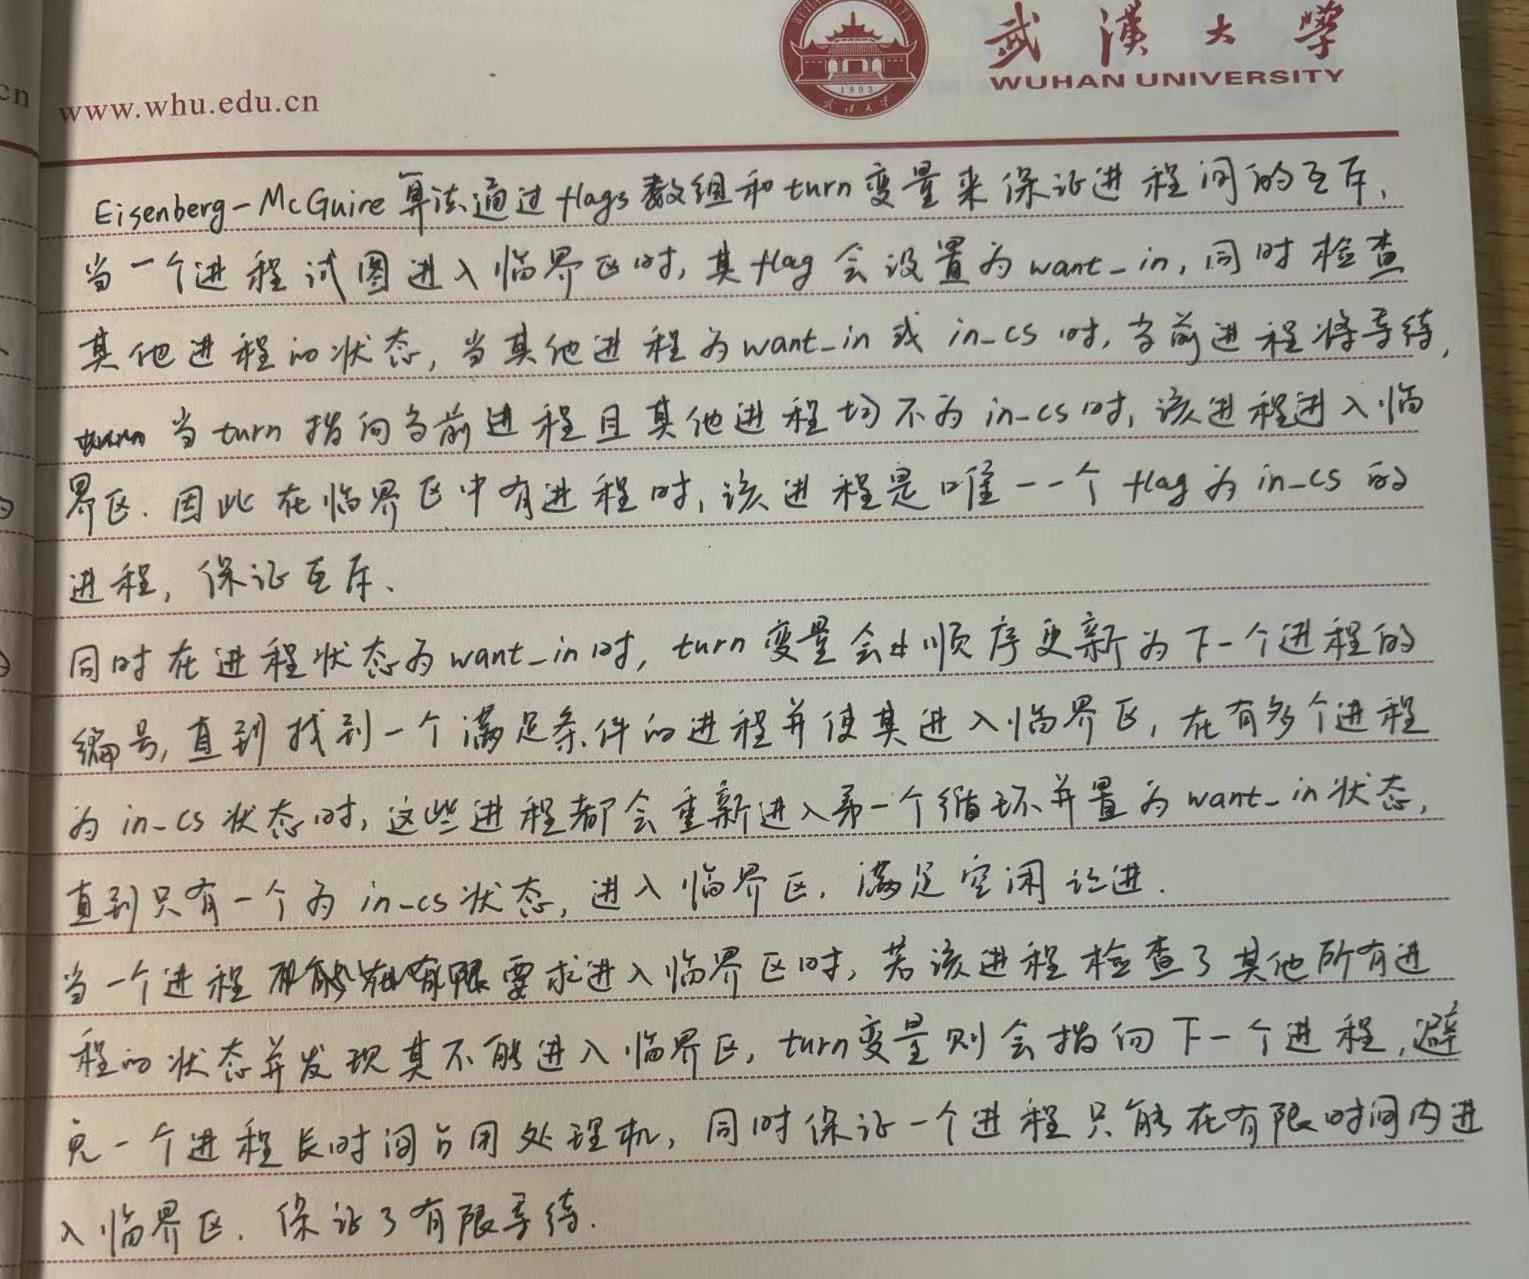 cn
www.whu.edu.cn
1893
武漢大學
WUHAN UNIVERSITY
Eisenberg-McGuire 算法通过 flags 数组和 turn 变量来保证进程间的互斥,
当一个进程试图进入临界区时, 其 flag 会设置为 want_in, 同时检查
其他进程的状态, 当其他进程为 want_in 或 in_cs 时, 当前进程将等待,
当 turn 指向当前进程且其他进程均不为 in_cs 时, 该进程进入临
界区. 因此在临界区中有进程时, 该进程是唯一一个 flag 为 in_cs 的
进程, 保证互斥.
同时在进程状态为 want_in 时, turn 变量会 顺序更新为下一个进程的
编号, 直到找到一个满足条件的进程并使其进入临界区, 在有多个进程
为 in_cs 状态时, 这些进程都会重新进入第一个循环并置为 want_in 状态,
直到只有一个为 in_cs 状态, 进入临界区. 满足空闲让进.
当一个进程要求进入临界区时, 若该进程检查了其他所有进
程的状态并发现其不能进入临界区, turn 变量则会指向下一个进程, 避
免一个进程长时间占用处理机, 同时保证一个进程只能在有限时间内进
入临界区. 保证了有限等待.